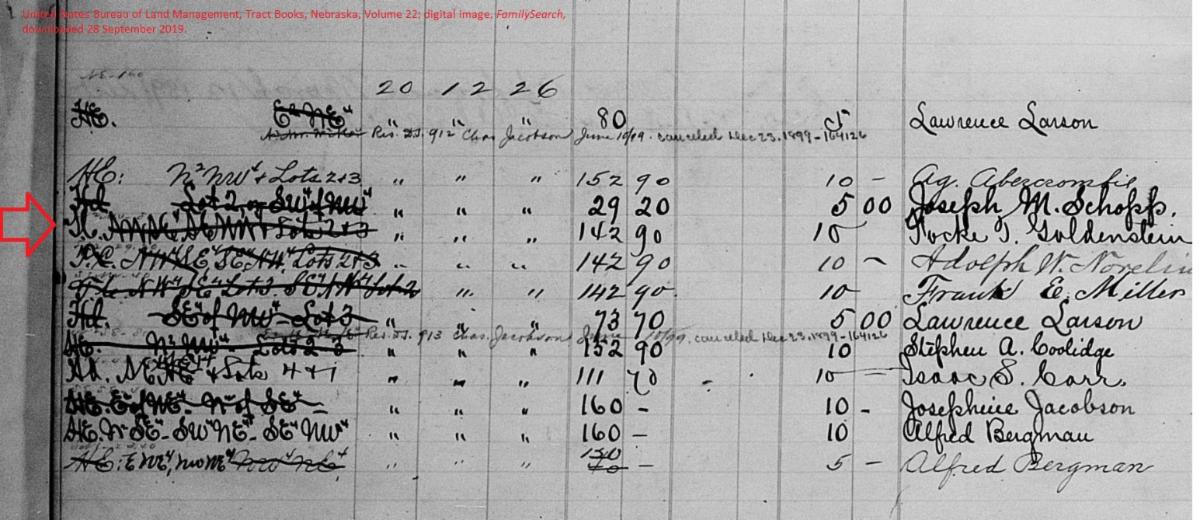 United States Bureau of Land Management, Tract Books, Nebraska, Volume 22; digital image, FamilySearch,
downloaded 28 September 2019.
20 12 26
HE. E² NE⁴ " " " 80 5 Lawrence Larson
Res. 912 Chas. Jacobson June 10/99. canceled Dec 23. 1899 - 164126
HE: N² NW⁴ + Lots 2+3 " " " 152 90 10 - Ag. Abercrombie
Hd. Lot 2 or SW⁴ of NW⁴ " " " 29 20 5 00 Joseph M. Schopp.
Lots 2+3 " " " 142 90 10 Pocke T. Goldenstein
NW⁴ SE⁴, SE⁴ NW⁴, Lots 2+3 " " " 142 90 10 - Adolph W. Norelius
NW⁴ SE⁴ Lot 3 Lot 2 " " 142 90. 10 - Frank E. Miller
Hd. SE⁴ of NW⁴ - Lot 3 " " " 73 70 5 00 Lawrence Larson
Res. 913 Chas. Jacobson 10/99. canceled Dec 23. 1899 - 164126
HE. N² NW⁴ Lots 2-3 " " " 152 90 10 Stephen A. Coolidge
Hd. NE⁴ + Lots 4 + 1 " " " 111 70 - 10 - Isaac S. Carr.
HE. E² of NE⁴ - N² of SE⁴ - " " " 160 - 10 - Josephine Jacobson
HE. N² SE⁴ - SW⁴ NE⁴ - SE⁴ NW⁴ " " " 160 - 10 Alfred Bergman
HE: E² NE⁴, NW NE⁴ NW⁴ NE⁴ " " " 80 - 5 - Alfred Bergman